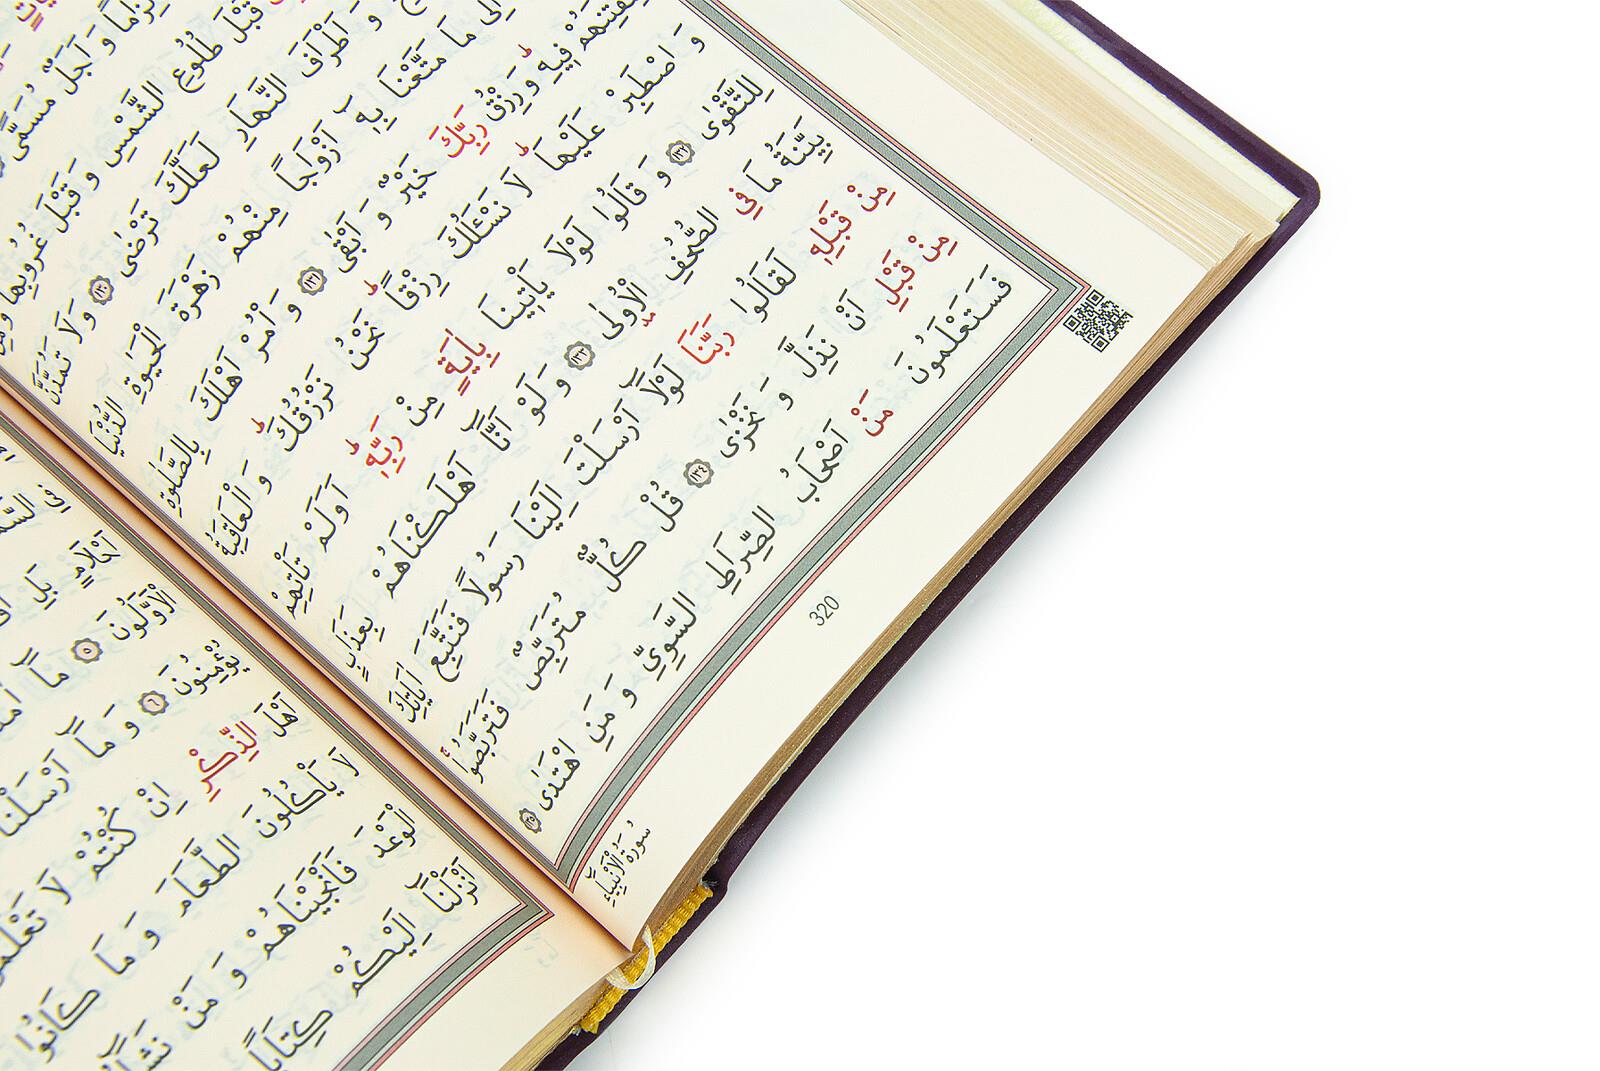 لِزَامًا وَ اَجَلٌ مُسَمًّى
قَبْلَ طُلُوعِ الشَّمْسِ وَ قَبْلَ غُرُوبِهَا وَ مِنْ
وَ اَطْرَافَ النَّهَارِ لَعَلَّكَ تَرْضٰى ١٣٠ وَ لَا تَمُدَّنَّ
اِلٰى مَا مَتَّعْنَا بِهٖٓ اَزْوَاجًا مِنْهُمْ زَهْرَةَ الْحَيٰوةِ الدُّنْيَا
لِنَفْتِنَهُمْ فِيهِ وَ رِزْقُ رَبِّكَ خَيْرٌ وَ اَبْقٰى ١٣١ وَ أْمُرْ اَهْلَكَ بِالصَّلٰوةِ
وَ اصْطَبِرْ عَلَيْهَا لَا نَسْـَٔلُكَ رِزْقًا نَحْنُ نَرْزُقُكَ وَ الْعَاقِبَةُ
لِلتَّقْوٰى ١٣٢ وَ قَالُوا لَوْلَا يَأْتِينَا بِاٰيَةٍ مِنْ رَبِّهٖ اَوَلَمْ تَأْتِهِمْ
بَيِّنَةُ مَا فِي الصُّحُفِ الْاُولٰى ١٣٣ وَ لَوْ اَنَّٓا اَهْلَكْنَاهُمْ بِعَذَابٍ
مِنْ قَبْلِهٖ لَقَالُوا رَبَّنَا لَوْلَٓا اَرْسَلْتَ اِلَيْنَا رَسُولًا فَنَتَّبِعَ اٰيَاتِكَ
مِنْ قَبْلِ اَنْ نَذِلَّ وَ نَخْزٰى ١٣٤ قُلْ كُلٌّ مُتَرَبِّصٌ فَتَرَبَّصُوا
فَسَتَعْلَمُونَ مَنْ اَصْحَابُ الصِّرَاطِ السَّوِيِّ وَ مَنِ اهْتَدٰى ١٣٥
320
سُورَةُ الْاَنْبِيَاءِ
فِي
اَحْلَامٍ بَلِ
الْاَوَّلُونَ ٥ مَٓا
يُؤْمِنُونَ ٦ وَ مَٓا اَرْسَلْنَا
اَهْلَ الذِّكْرِ اِنْ كُنْتُمْ لَا
لَا يَأْكُلُونَ الطَّعَامَ وَ مَا كَانُوا
الْوَعْدَ فَاَنْجَيْنَاهُمْ وَ مَنْ نَشَٓاءُ
اَنْزَلْنَٓا اِلَيْكُمْ كِتَابًا